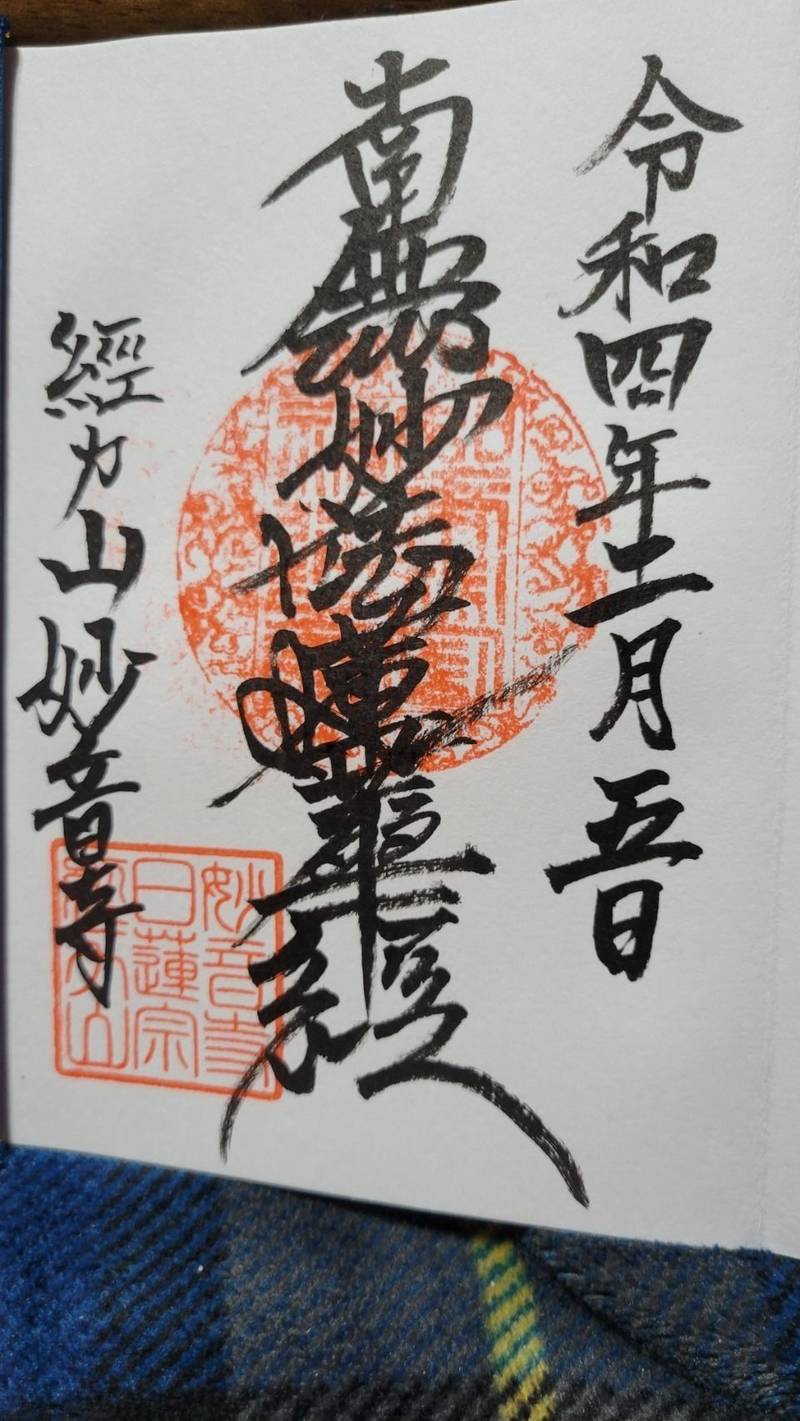 令和四年二月五日
南無妙法蓮華経
經力山妙音寺
妙音寺
日蓮宗